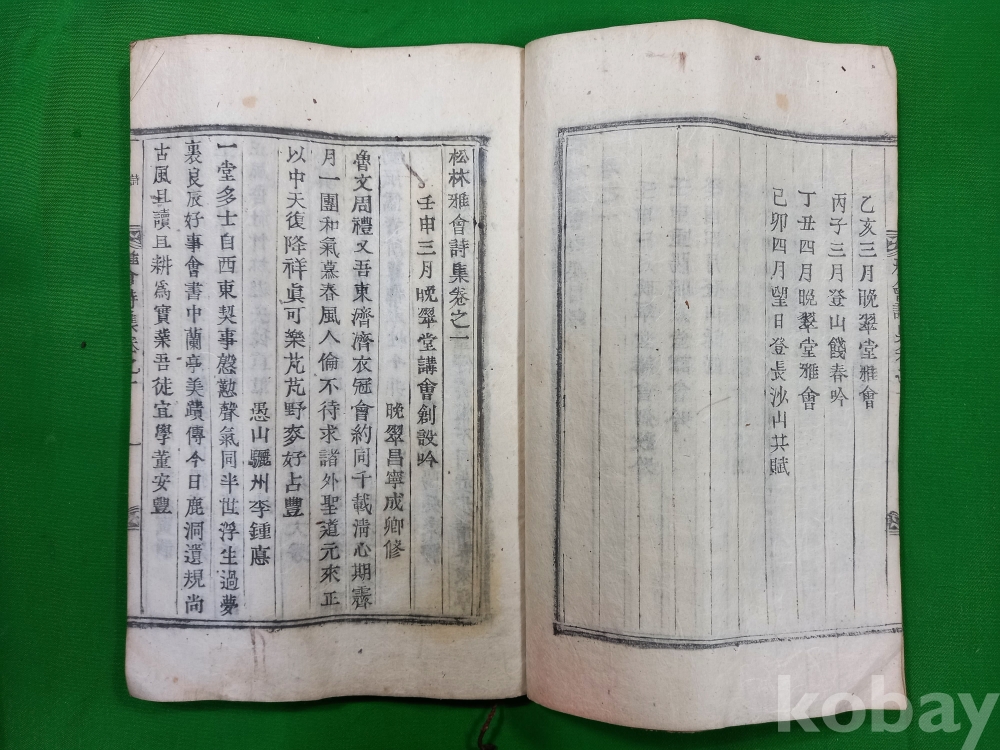 乙亥三月晩翠堂雅會
丙子三月登山餞春吟
丁丑四月晩翠堂雅會
己卯四月望日登長沙山共賦
松林雅會詩集卷之一
壬申三月晩翠堂講會創設吟
晩翠昌寧成卿修
魯文周禮又吾東濟濟衣冠會約同千載淸心期霽
月一團和氣慕春風人倫不待求諸外聖道元來正
以中天復降祥眞可樂芃芃野麥好占豐
愚山驪州李鍾悳
一堂多士自西東契事慇懃聲氣同半世浮生過夢
裏良辰好事會書中蘭亭美蹟傳今日鹿洞遺規尚
古風且讀且耕爲實業吾徒宜學董安豐
kobay